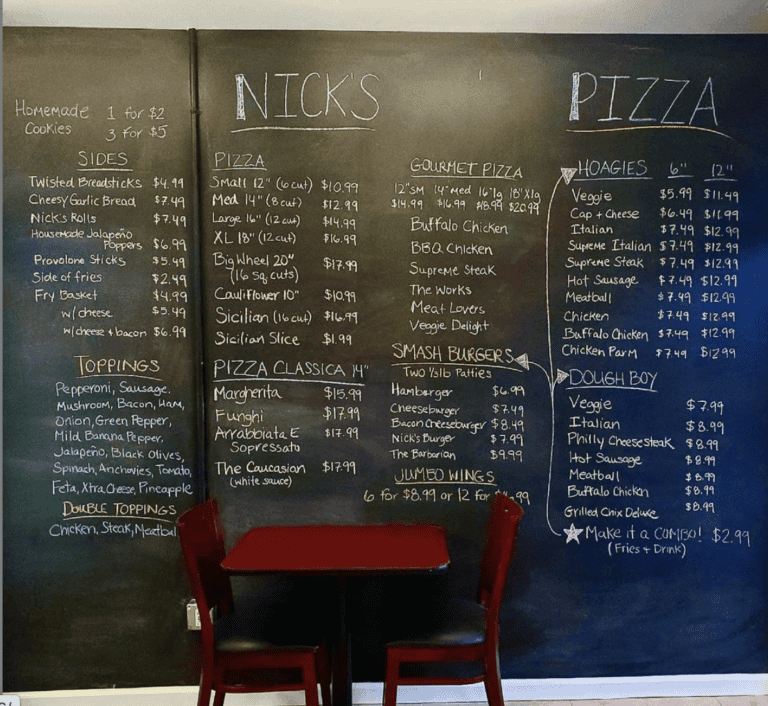 NICK'S PIZZA
Homemade 1 for $2
Cookies 3 for $5
SIDES
Twisted Breadsticks $4.99
Cheesy Garlic Bread $7.49
Nick's Rolls $7.49
Housemade Jalapeño
Poppers $6.99
Provolone Sticks $5.49
Side of fries $2.49
Fry Basket $4.99
w/cheese $5.49
w/cheese + bacon $6.99
TOPPINGS
Pepperoni, Sausage,
Mushroom, Bacon, Ham,
Onion, Green Pepper,
Mild Banana Pepper,
Jalapeño, Black Olives,
Spinach, Anchovies, Tomato,
Feta, Xtra Cheese, Pineapple
DOUBLE TOPPINGS
Chicken, Steak, Meatball
PIZZA
Small 12" (6 cut) $10.99
Med 14" (8 cut) $12.99
Large 16" (12 cut) $14.99
XL 18" (12 cut) $16.99
Big Wheel 20" $17.99
(16 Sq. cuts)
Cauliflower 10" $10.99
Sicilian (16 cut) $16.99
Sicilian Slice $1.99
PIZZA CLASSICA 14"
Margherita $15.99
Funghi $17.99
Arrabbiata E $17.99
Sopressato
The Caucasion $17.99
(white sauce)
GOURMET PIZZA
12" SM 14" Med 16" lg 18" Xlg
$14.99 $16.99 $18.99 $20.99
Buffalo Chicken
BBQ Chicken
Supreme Steak
The Works
Meat Lovers
Veggie Delight
SMASH BURGERS
Two 1/3 lb Patties
Hamburger $6.99
Cheeseburger $7.49
Bacon Cheeseburger $8.49
Nick's Burger $7.99
The Barbarian $9.99
JUMBO WINGS
6 for $8.99 or 12 for
HOAGIES 6" 12"
Veggie $5.99 $11.49
Cap + Cheese $6.49 $11.99
Italian $7.49 $12.99
Supreme Italian $7.49 $12.99
Supreme Steak $7.49 $12.99
Hot Sausage $7.49 $12.99
Meatball $7.49 $12.99
Chicken $7.49 $12.99
Buffalo Chicken $7.49 $12.99
Chicken Parm $7.49 $12.99
DOUGH BOY
Veggie $7.99
Italian $8.99
Philly Cheesesteak $8.99
Hot Sausage $8.99
Meatball $8.99
Buffalo Chicken $8.99
Grilled Chix Deluxe $8.99
Make it a COMBO! $2.99
(Fries + Drink)